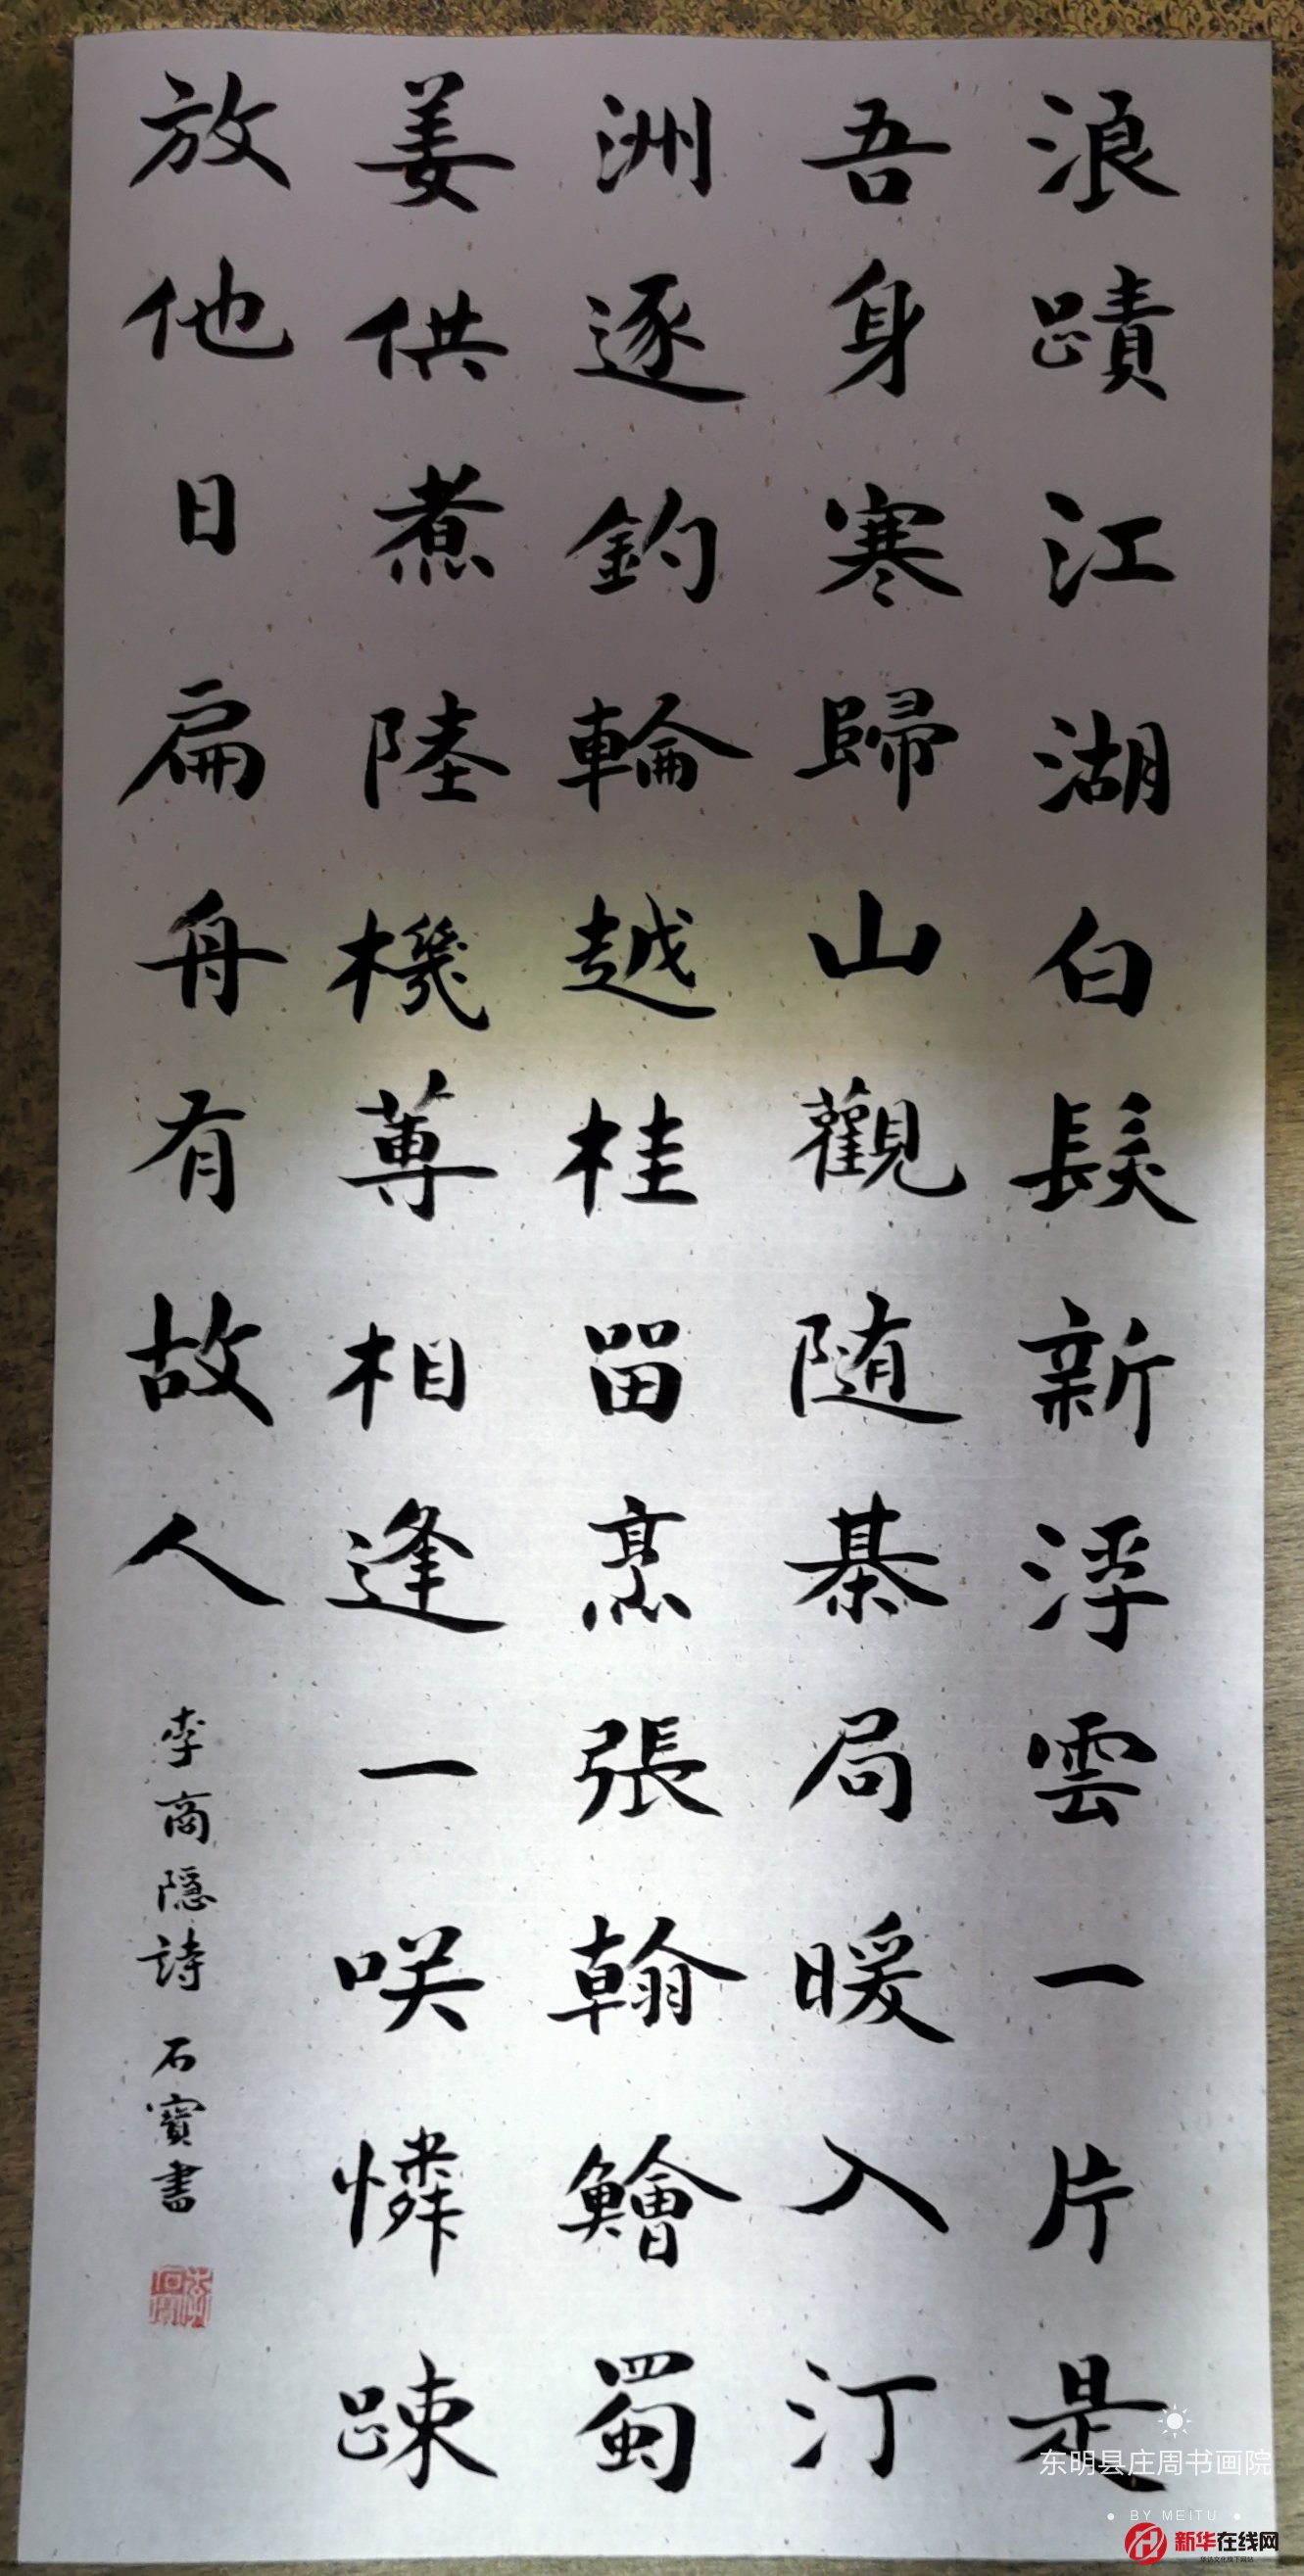 浪蹟江湖白髮新浮雲一片是
吾身寒歸山觀随棊局暖入汀
洲逐釣輪越桂留烹張翰鱠蜀
姜供煮陸機蓴相逢一咲憐踈
放他日扁舟有故人
李商隱詩 石寶書
东明县庄周书画院
BY MEITU
新华在线网